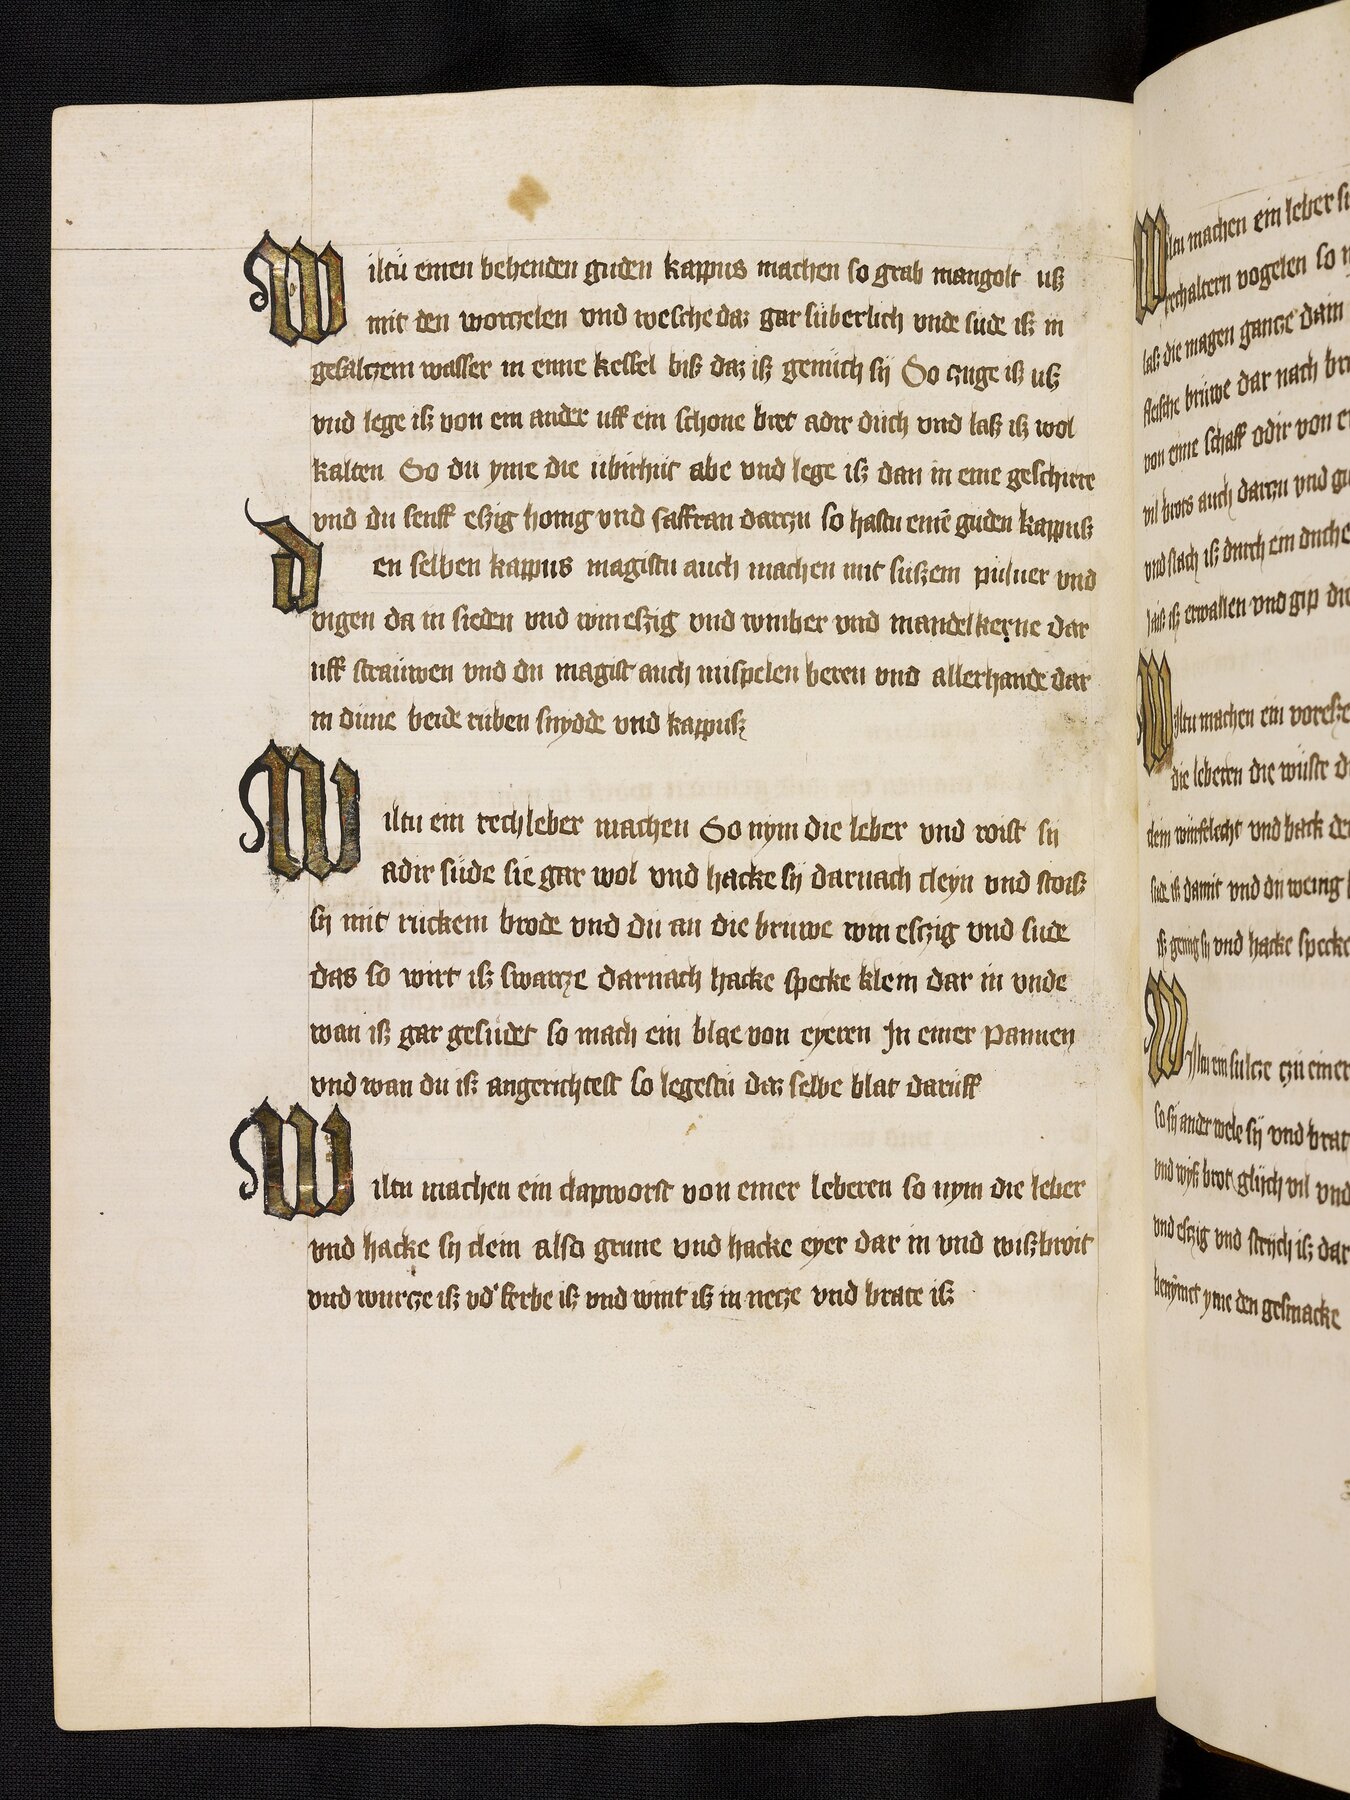 Wiltu einen behenden guden kappus machen so grab mangolt uß
mit den wortzelen vnd wesche daz gar suberlich vnde sude iß in
gesaltzem wasser in eyme kessel biß daz iß genuch sij So zuge iß uß
vnd lege iß von ein ander uff ein schone bret adir duch vnd laß iß wol
kalten So du yme die ubirhut abe vnd lege iß dan in eine geschirre
vnd du senff eßig honig vnd saffran dartzu so hastu einē guden kappuß
Den selben kappus magistu auch machen mit sußem puluer vnd
vigen da in sieden vnd win eßig vnd winber vnd mandelkerne dar
uff strauwen vnd du magist auch mispelen beren vnd allerhande dar
in dune beide ruben snydde vnd kappuß
Wiltu ein rechleber machen So nym die leber vnd roist sij
adir sude sie gar wol vnd hacke sij darnach cleyn vnd stoiß
sij mit ruckem brode vnd du an die bruwe win eszig vnd sude
das so wirt iß swartze darnach hacke specke klein dar in vnde
wan iß gar gesudet so mach ein blae von eyeren In einer pannen
vnd wan du iß angerichtest so legestu daz selbe blat daruff
Wiltu machen ein clapworst von einer leberen so nym die leber
vnd hacke sij clein also grune vnd hacke eyer dar in vnd wißbroit
vnd wurtze iß vd' ferbe iß vnd wint iß in netze vnd brate iß
Wiltu machen ein leber
vogelen so
laß die magen gantze dain
fleische bruwe dar nach
von eime schaff odir von
vil brots auch dartzu vnd
vnd slach iß durch ein duche
laiß iß erwallen vnd gip die
Wiltu machen ein
die leberen die wuste
dem wirfelecht vnd back
sude iß damit vnd du wenig
iß genug sij vnd hacke specke
Wiltu ein sultze tzu einer
so sij ander wele sij vnd brat
vnd wyß brot glijch vil vnd
vnd eszig vnd strijch iß dar
benymet yme den gesmacke